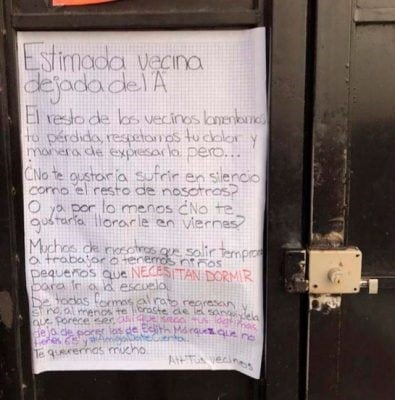 Estimada vecina
dejada del "A"
El resto de los vecinos lamentamos
tu pérdida, respetamos tu dolor y
manera de expresarla pero...
¿No te gustaría sufrir en silencio
como el resto de nosotros?
O ya por lo menos ¿No te
gustaría llorarle en viernes?
Muchos de nosotros que salir temprano
a trabajar o tenemos niños
pequeños que NECESITAN DORMIR
para ir a la escuela.
De todas formas al rato regresan y
si no, al menos te libraste de la sanguijuela
que parece ser, así que seca tus lágrimas,
deja de poner las de Edith Márquez que no
tienes 65 y #AmigaDateCuenta
Te queremos mucho.
Att Tus vecinos